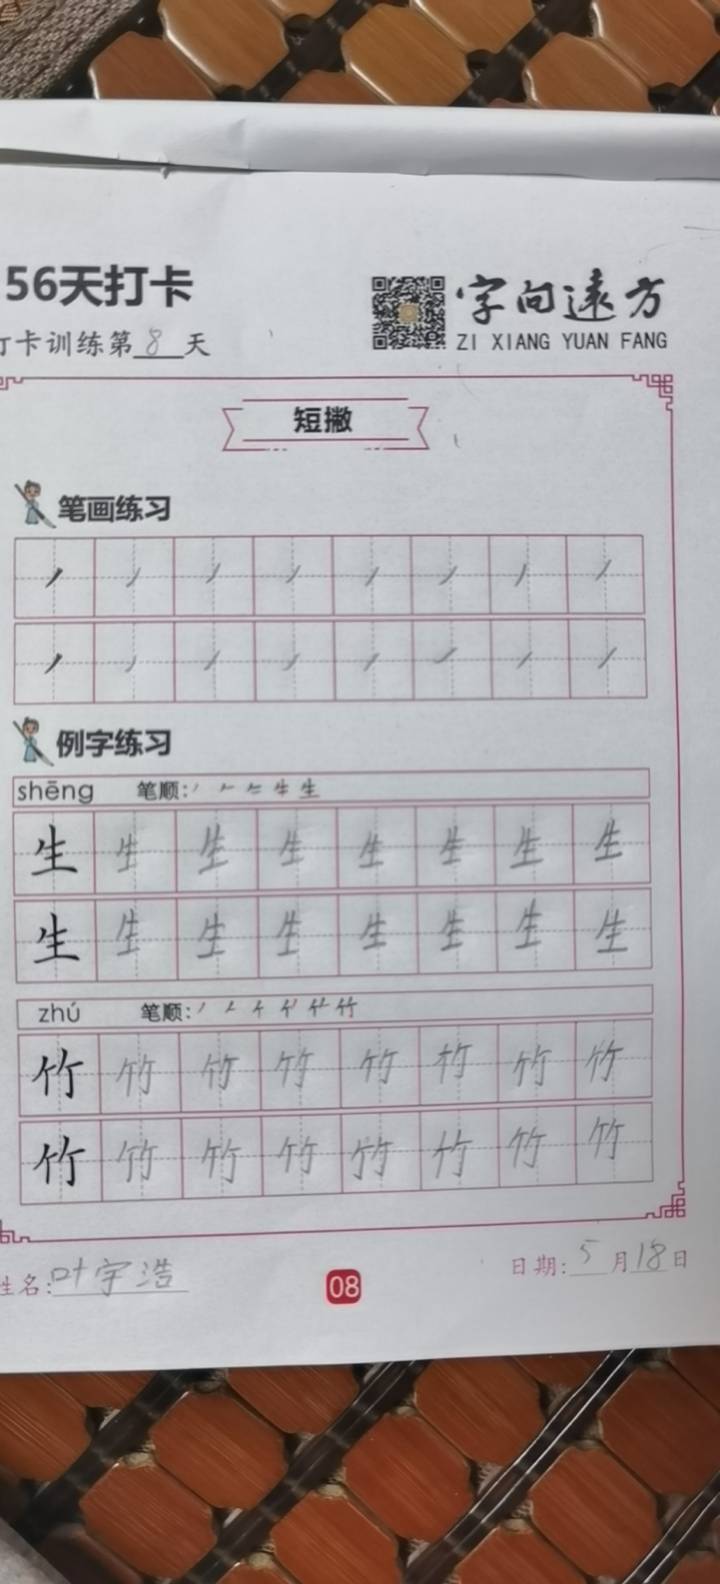 56天打卡
字向远方
打卡训练第8天
ZI XIANG YUAN FANG
短撇
笔画练习
例字练习
shēng 笔顺:
生 生 生 生 生 生 生 生
生 生 生 生 生 生 生 生
zhú 笔顺:
竹 竹 竹 竹 竹 竹 竹 竹
竹 竹 竹 竹 竹 竹 竹 竹
姓名:叶宇浩
08
日期:5月18日